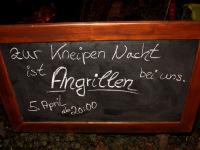 zur Kneipen Nacht
ist Angrillen bei uns.
5. April
ab 20.00